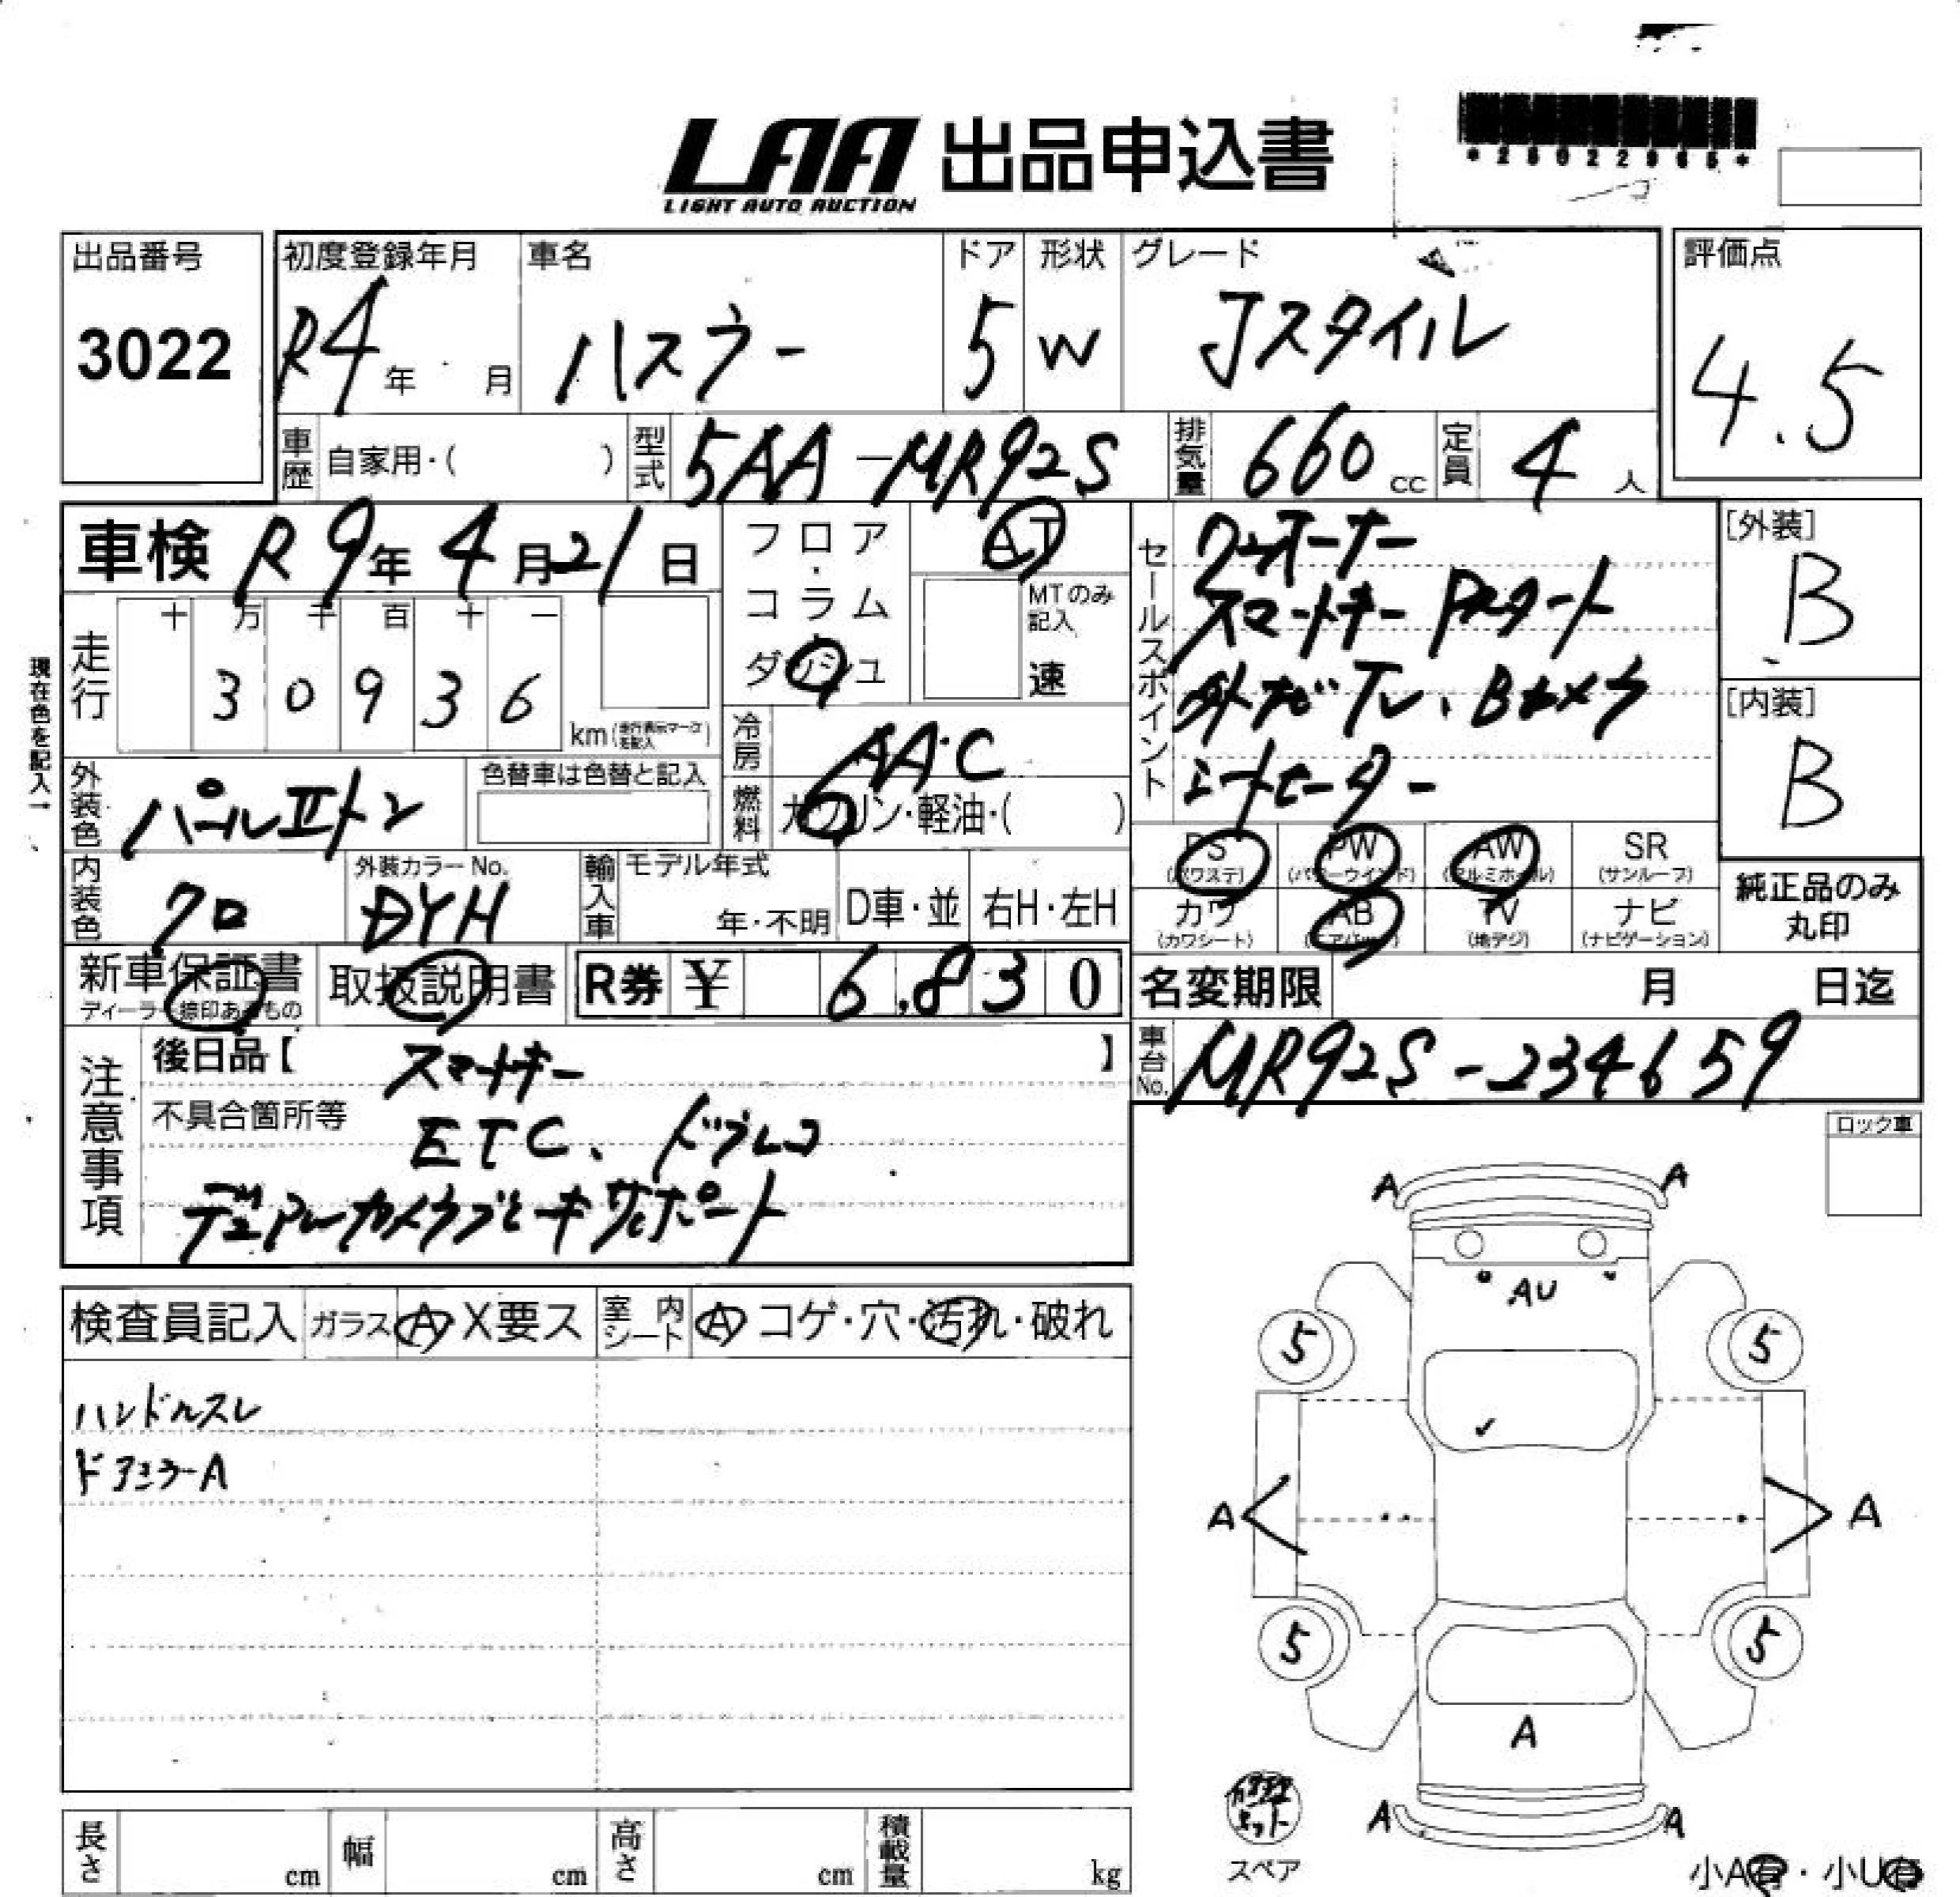 LAA 出品申込書
LIGHT AUTO AUCTION
*26022965*
出品番号
3022
初度登録年月
R4年 月
車名
ハスラー
ドア
5
形状
W
グレード
Jスタイル
評価点
4.5
車歴 自家用・( )
型式 5AA-MR92S
排気量 660cc
定員 4人
車検 R9年4月21日
フロア・コラム
ダッシュ
AT
MTのみ記入
速
現在色を記入→
走行
十 万 千 百 十 一
3 0 9 3 6
km(走行表示マークを記入)
冷房 AAC
燃料 ガソリン・軽油・( )
外装色 パールIIトン
色替車は色替と記入
内装色 クロ
外装カラーNo.
DYH
輸入車
モデル年式
年・不明
D車・並
右H・左H
セールスポイント
ワンオーナー
スマートキー Pスタート
外ナビTV、Bカメラ
シートヒーター
[外装]
B
[内装]
B
PS (パワステ)
PW (パワーウインド)
AW (アルミホイル)
SR (サンルーフ)
カワ (カワシート)
AB (エアバッグ)
TV (地デジ)
ナビ (ナビゲーション)
純正品のみ丸印
新車保証書
ディーラー捺印あるもの
取扱説明書
R券 ¥ 6,830
名変期限 月 日迄
車台No. MR92S-234659
注意事項
後日品【 スマートキー 】
不具合箇所等
ETC、ドラレコ
デュアルカメラブレーキサポート
ロック車
検査員記入
ガラス A X要ス
室内シート A コゲ・穴・汚れ・破れ
ハンドルスレ
ドアミラーA
A A
AU
5 5
A A
5 5
A
A A
修理キット
スペア
小A有・小U有
長さ cm
幅 cm
高さ cm
積載量 kg